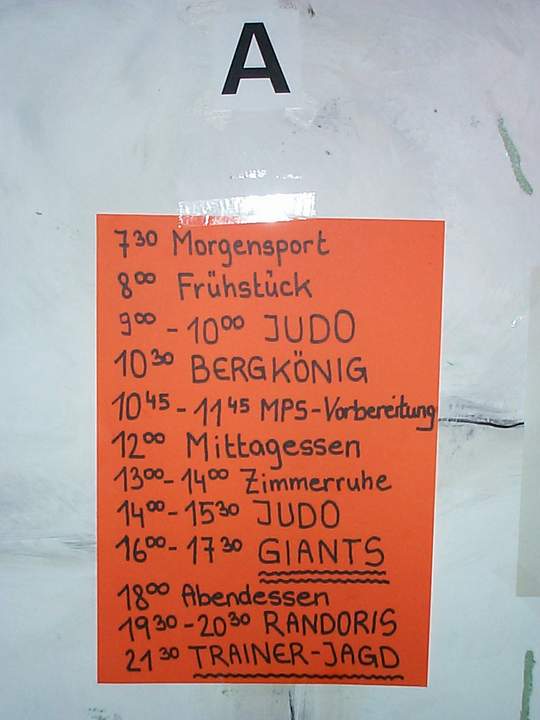 A
7³⁰ Morgensport
8⁰⁰ Frühstück
9⁰⁰ - 10⁰⁰ JUDO
10³⁰ BERGKÖNIG
10⁴⁵ - 11⁴⁵ MPS-Vorbereitung
12⁰⁰ Mittagessen
13⁰⁰ - 14⁰⁰ Zimmerruhe
14⁰⁰ - 15³⁰ JUDO
16⁰⁰ - 17³⁰ GIANTS
18⁰⁰ Abendessen
19³⁰ - 20³⁰ RANDORIS
21³⁰ TRAINER-JAGD